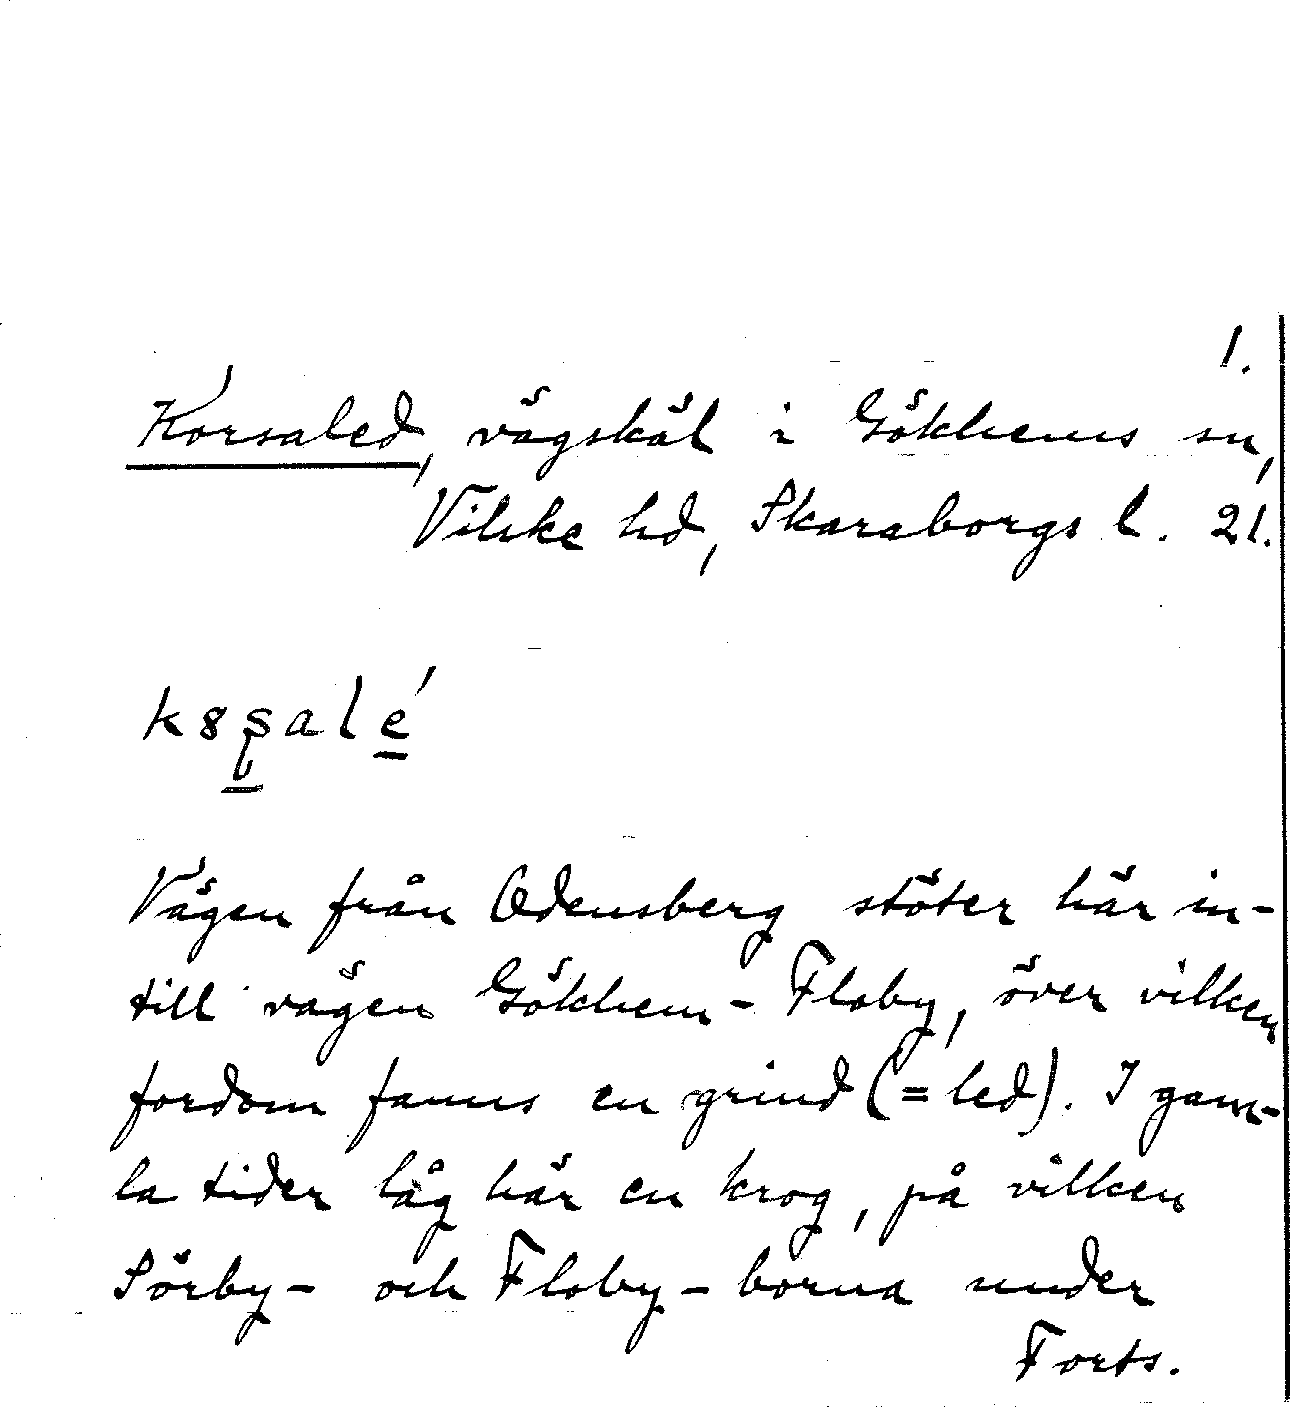 1.
Korsaled, vägskäl i Gökhems sn,
Vilske hd, Skaraborgs l. 21.
Vägen från Odensberg stöter här in-
till vägen Gökhem - Floby, över vilken
fordom fanns en grind (= led). I gam-
la tider låg här en krog, på vilken
Sörby- och Floby-borna under
Forts.